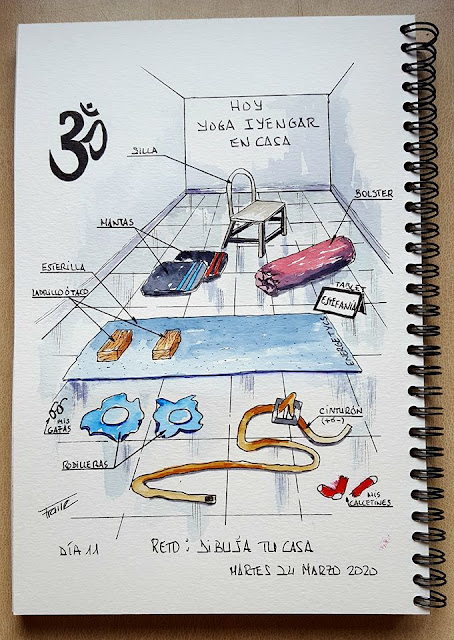 ॐ
HOY
YOGA IYENGAR
EN CASA
SILLA
BOLSTER
MANTAS
ESTERILLA
TABLET
ESTEFANÍA
LADRILLO Ó TACO
MIS
GAFAS
CINTURÓN
(+ó-)
RODILLERAS
MIS
CALCETINES
DÍA 11
RETO: DIBUJA TU CASA
MARTES 24 MARZO 2020